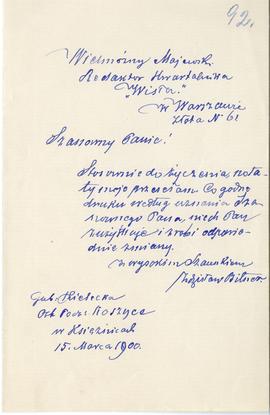 92.
Wielmożny Majewski
Redaktor Kwartalnika
"Wisła"
w Warszawie
Złota N 61
Szanowny Panie!
Stosownie do życzenia, nota-
ty moje przesełam Co godne
druku według uznania Sza-
nownego Pana, niech Pan
zużytkuje i zrobi odpowie-
dnie zmiany.
z wysokim Szacunkiem
Gub. Kielecka
Ost. Pocz. Koszyce
w Książnicach
15. Marca 1900.